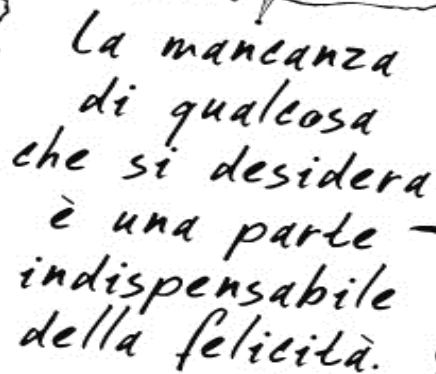 la mancanza
di qualcosa
che si desidera
è una parte
indispensabile
della felicità.